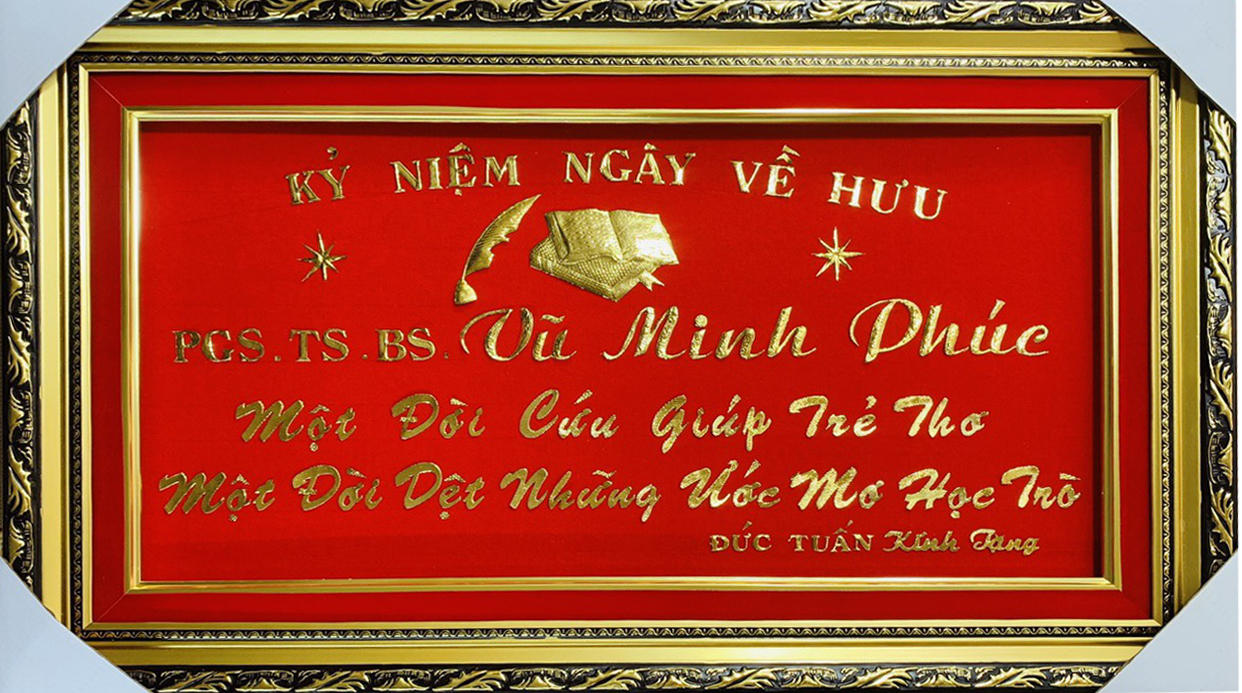 KỶ NIỆM NGÂY VỀ HƯU
PGS.TS.BS. Vũ Minh Phúc
Một Đời Cứu Giúp Trẻ Thơ
Một Đời Dệt Những Ước Mơ Học Trò
ĐỨC TUẤN Kính Tặng